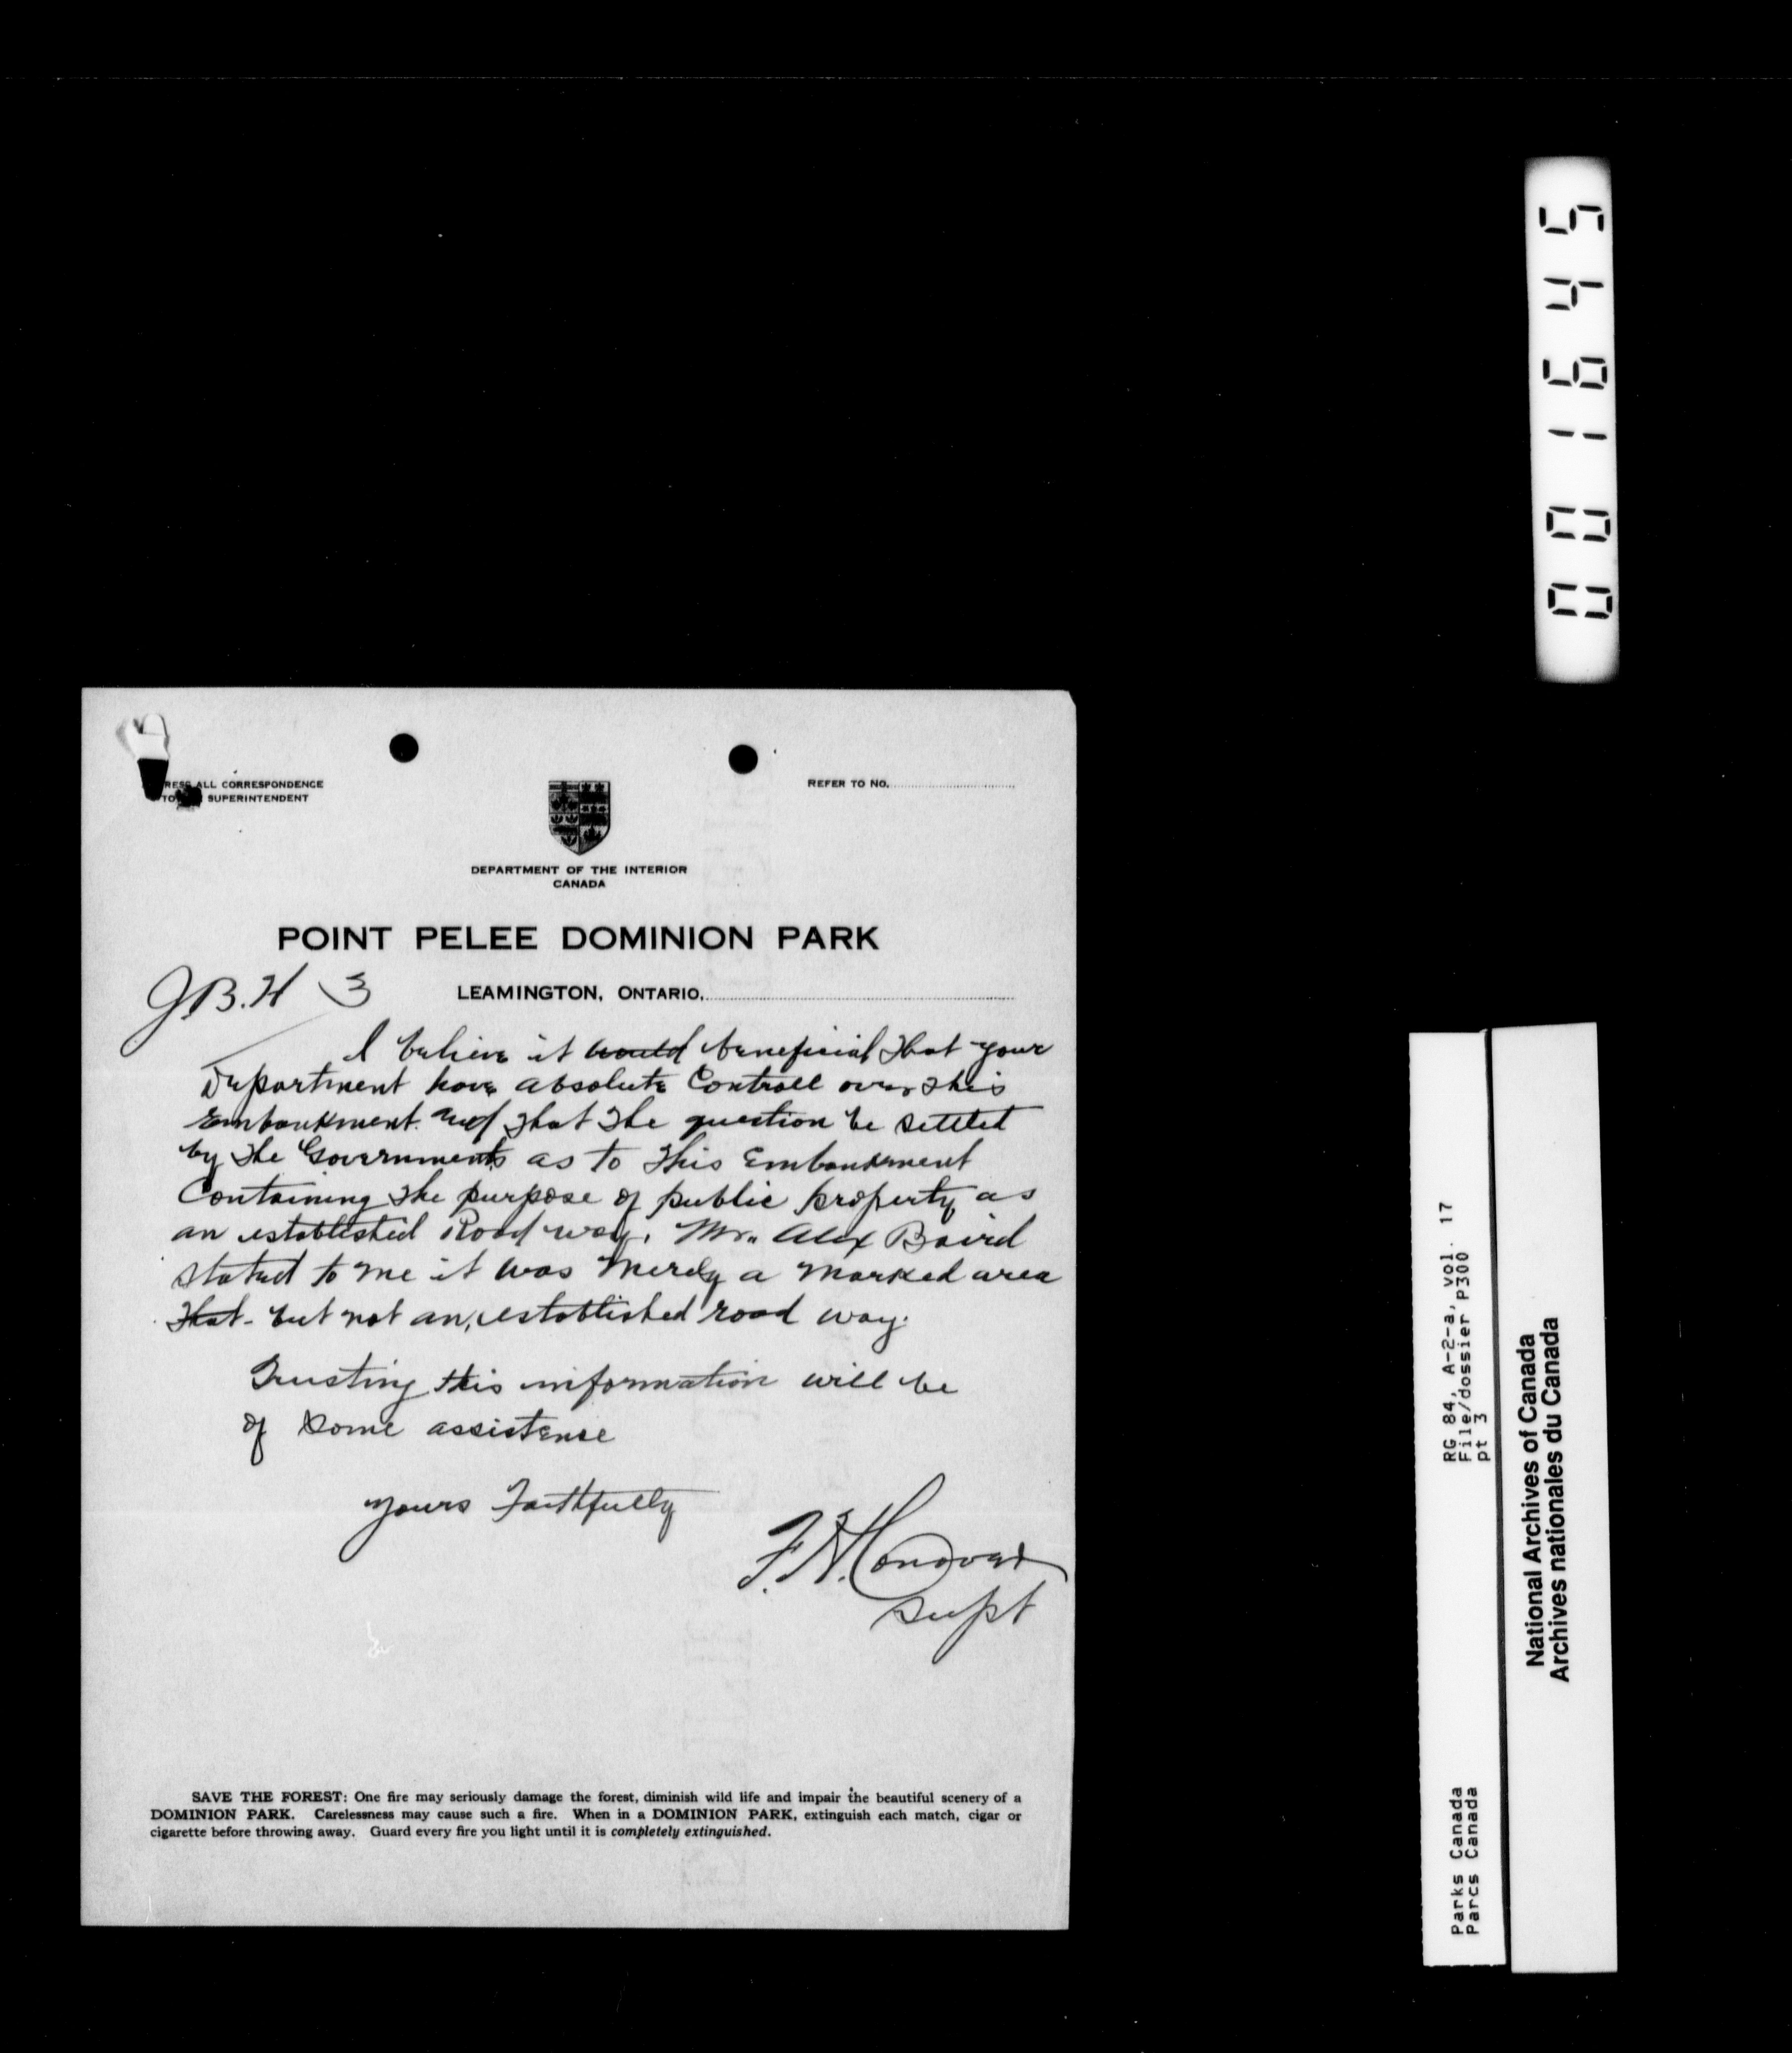 RESS ALL CORRESPONDENCE
TO SUPERINTENDENT
REFER TO NO.
DEPARTMENT OF THE INTERIOR
CANADA
POINT PELEE DOMINION PARK
J.B.H 3
LEAMINGTON, ONTARIO,
I believe it would beneficial that your
Department have absolute Controll over this
Embankment. and that the question be settled
by the Governments as to this Embankment
Containing the purpose of public property as
an established Road way. Mr. Alex Baird
stated to me it was merely a marked area
that - but not an, established road way.
Trusting this information will be
of some assistence
Yours Faithfully
F.H. Conover
Supt
SAVE THE FOREST: One fire may seriously damage the forest, diminish wild life and impair the beautiful scenery of a
DOMINION PARK. Carelessness may cause such a fire. When in a DOMINION PARK, extinguish each match, cigar or
cigarette before throwing away. Guard every fire you light until it is completely extinguished.
001645
RG 84, A-2-a, vol. 17
File/dossier P300
pt 3
Parks Canada
Parcs Canada
National Archives of Canada
Archives nationales du Canada